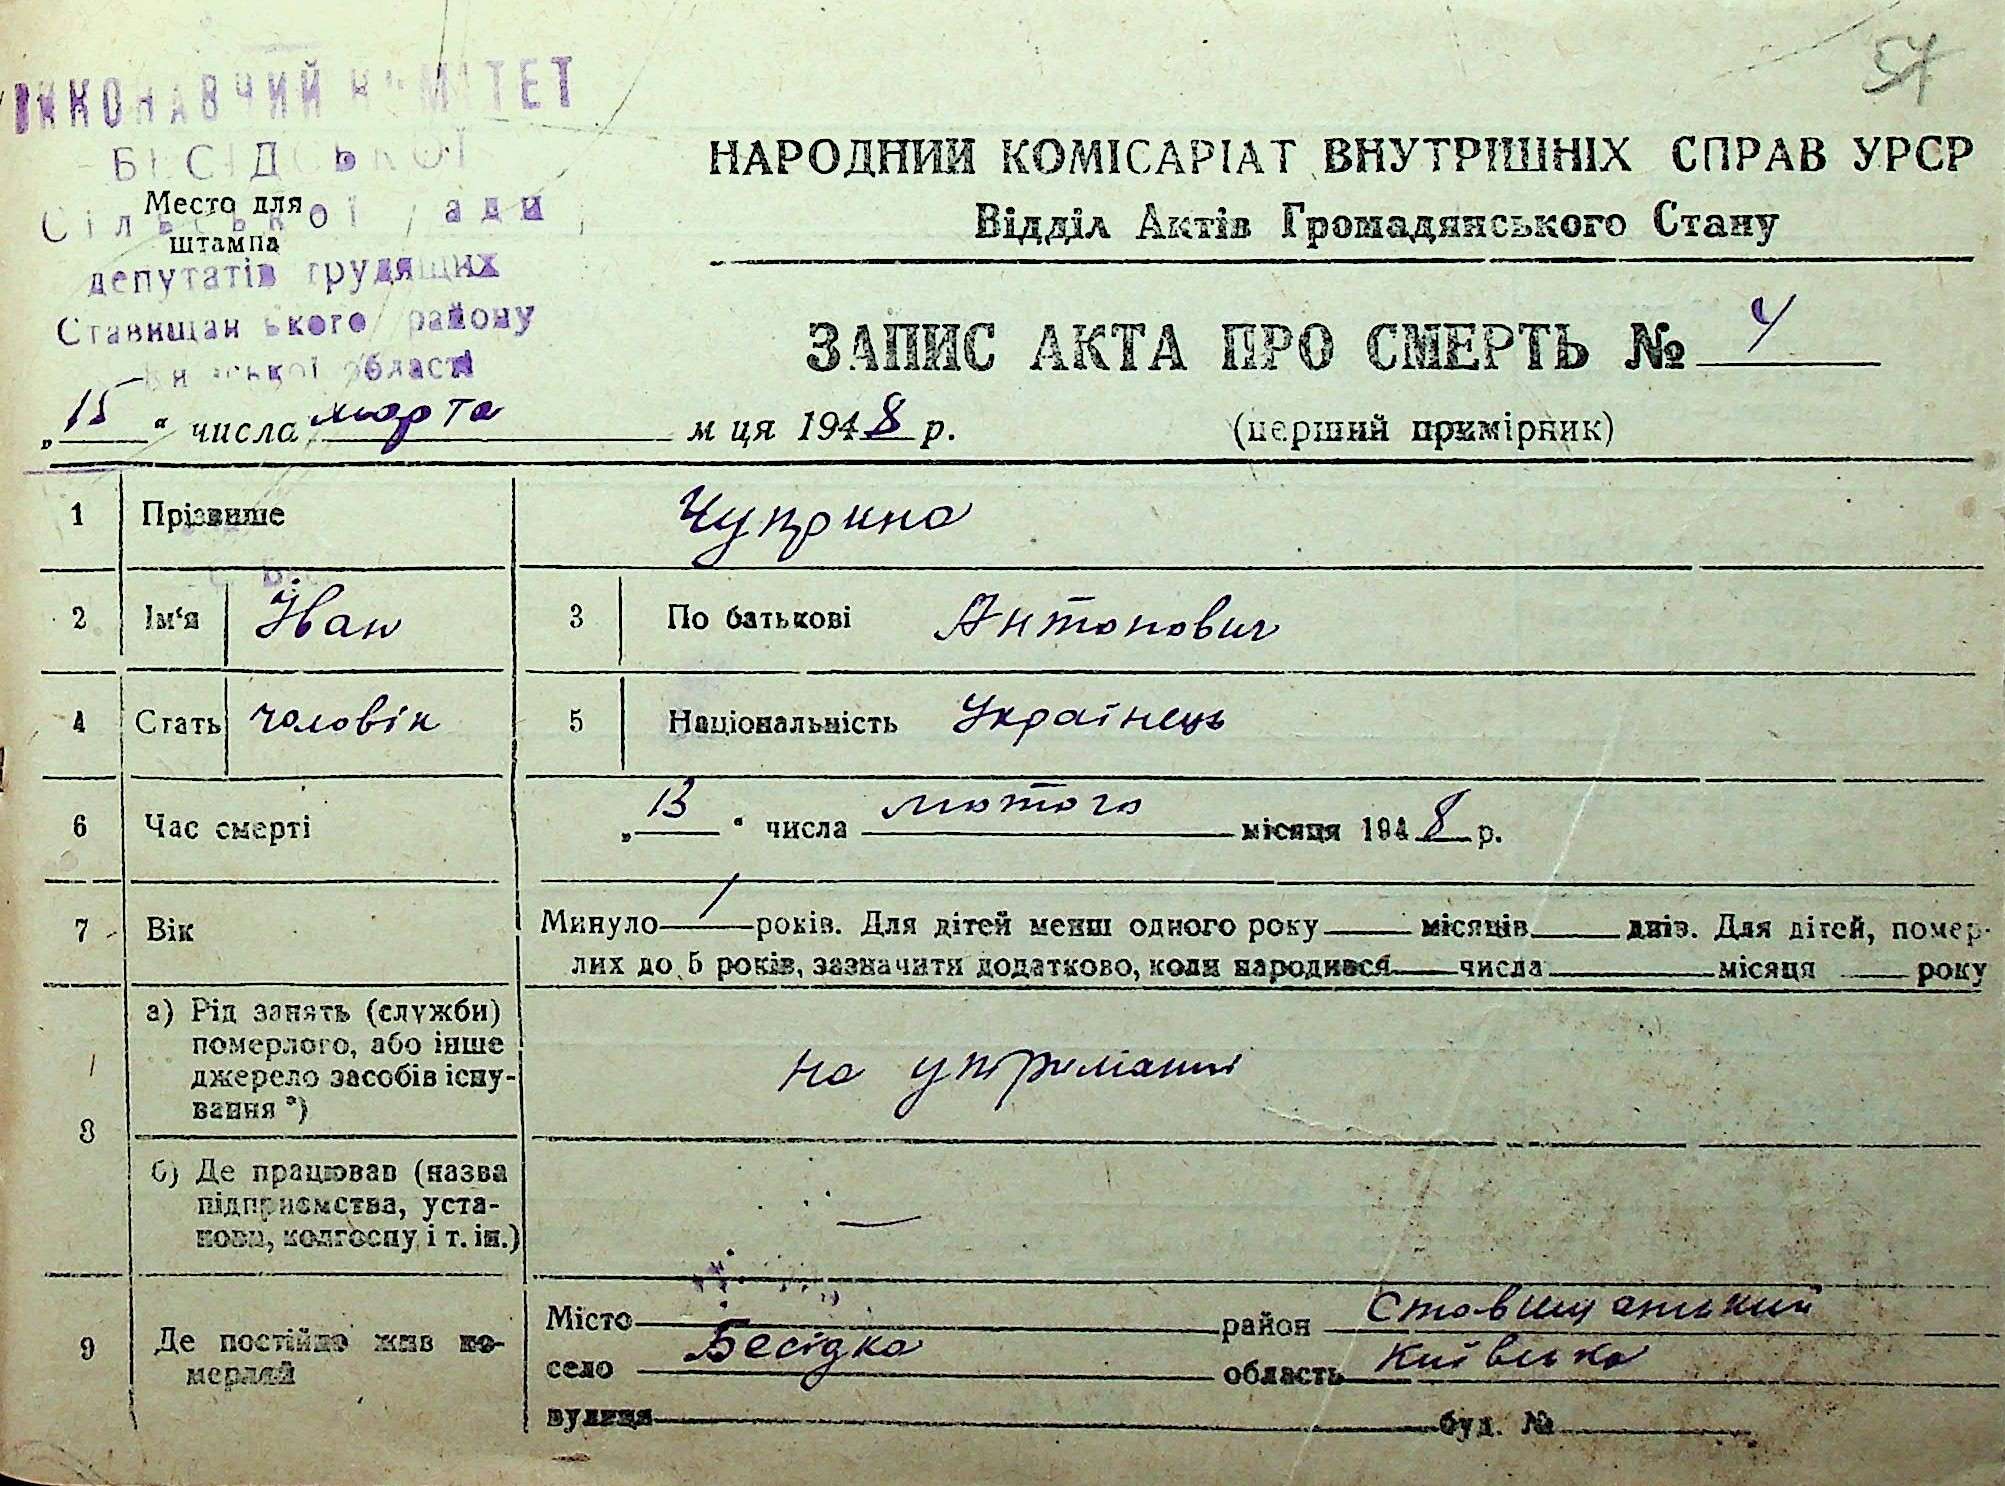 54
ВИКОНАВЧИЙ КОМІТЕТ
БЕСІДСЬКОЇ
Сільської ради
депутатів трудящих
Ставищанського району
Київської області
Место для
штампа
НАРОДНИЙ КОМІСАРІАТ ВНУТРІШНІХ СПРАВ УРСР
Відділ Актів Громадянського Стану
ЗАПИС АКТА ПРО СМЕРТЬ № 4
„15“ числа марта м ця 1948 р.
(перший примірник)
1 Прізвище Чуприна
2 Ім'я Іван 3 По батькові Антонович
4 Стать чоловік 5 Національність Українець
6 Час смерті „13“ числа лютого місяця 1948 р.
7 Вік Минуло 1 років. Для дітей менш одного року місяців днів. Для дітей, помер-
лих до 5 років, зазначити додатково, коли народився числа місяця року
8 а) Рід занять (служби)
померлого, або інше
джерело засобів існу-
вання *)
на утриманні
б) Де працював (назва
підприємства, уста-
нови, колгоспу і т. ін.)
—
9 Де постійно жив по-
мерлий
Місто район Ставищанський
село Бесідка область Київська
вулиця буд. №